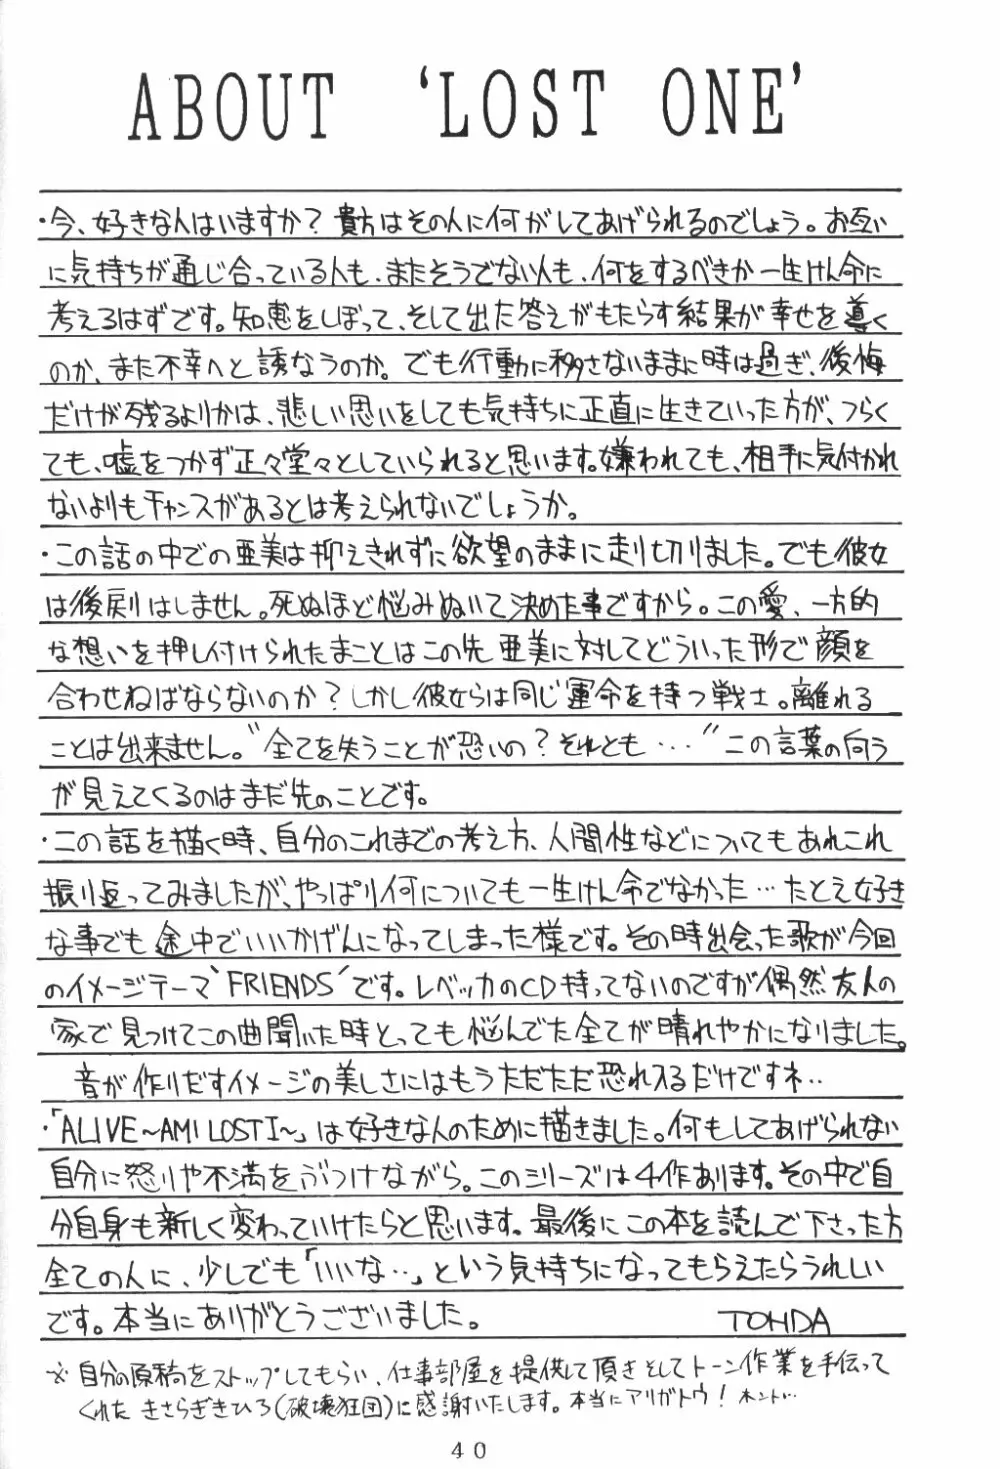 ABOUT 'LOST ONE'
・今、好きな人はいますか？貴方はその人に何がしてあげられるのでしょう。お互い
に気持ちが通じ合っている人も、またそうでない人も、何をするべきか一生けん命に
考えるはずです。知恵をしぼって、そして出た答えがもたらす結果が幸せを導く
のか、また不幸へと誘なうのか。でも行動に移さないままに時は過ぎ、後悔
だけが残るよりかは、悲しい思いをしても気持ちに正直に生きていった方が、つらく
ても、嘘をつかず正々堂々としていられると思います。嫌われても、相手に気付かれ
ないよりもチャンスがあるとは考えられないでしょうか。
・この話の中での亜美は抑えきれずに欲望のままに走り切りました。でも彼女
は後戻りはしません。死ぬほど悩みぬいて決めた事ですから。この愛、一方的
な想いを押し付けられたまことはこの先亜美に対してどういった形で顔を
合わせねばならないのか？しかし彼女らは同じ運命を持つ戦士。離れる
ことは出来ません。"全てを失うことが恐いの？それとも・・・"この言葉の向う
が見えてくるのはまだ先のことです。
・この話を描く時、自分のこれまでの考え方、人間性などについてもあれこれ
振り返ってみましたが、やっぱり何についても一生けん命でなかった…たとえ好き
な事でも途中でいいかげんになってしまった様です。その時出会った歌が今回
のイメージテーマ'FRIENDS'です。レベッカのCD持ってないのですが偶然友人の
家で見つけてこの曲聞いた時とっても悩んでた全てが晴れやかになりました。
音が作りだすイメージの美しさにはもうただただ恐れ入るだけですネ‥
・「ALIVE～AMI LOST I～」は好きな人のために描きました。何もしてあげられない
自分に怒りや不満をぶつけながら。このシリーズは4作あります。その中で自
分自身も新しく変わっていけたらと思います。最後にこの本を読んで下さった方
全ての人に、少しでも「いいな‥」という気持ちになってもらえたらうれしい
です。本当にありがとうございました。 TOHDA
※自分の原稿をストップしてもらい、仕事部屋を提供して頂きそしてトーン作業を手伝って
くれたきさらぎきひろ(破壊狂団)に感謝いたします。本当にアリガトウ！ホント…
40